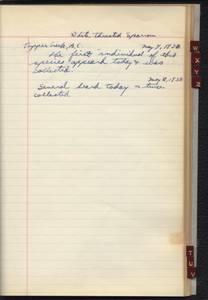 White Throated Sparrow
Copper Creek, B.C. May 7, 1938
The first individual of this
species appeared today & was
collected.
May 8, 1938
Several heard today &
collected
W
X
Y
Z
T
U
V